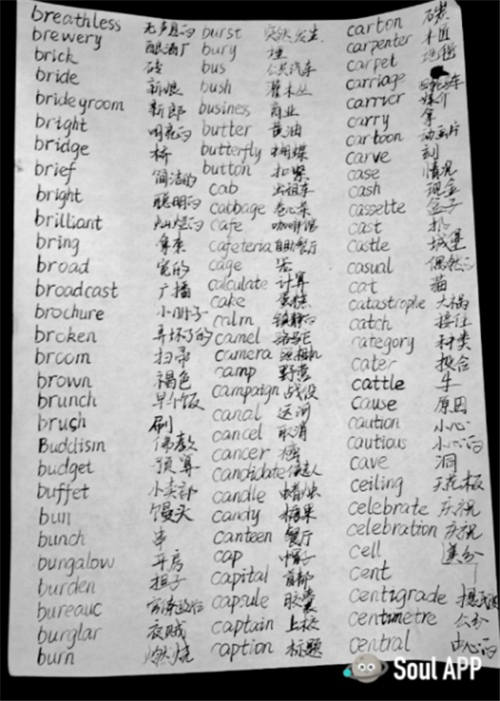 breathless 无声息的
brewery 酿酒厂
brick 砖
bride 新娘
brideyroom 新郎
bright 明亮的
bridge 桥
brief 简洁的
bright 聪明的
brilliant 灿烂的
bring 拿来
broad 宽的
broadcast 广播
brochure 小册子
broken 弄坏了的
broom 扫帚
brown 褐色
brunch 早午饭
brush 刷
Buddism 佛教
budget 预算
buffet 小卖部
bun 馒头
bunch 串
bungalow 平房
burden 担子
bureauc
burglar 夜贼
burn 燃烧
burst 突然发生
bury 埋
bus 公共汽车
bush 灌木丛
business 商业
butter 黄油
butterfly 蝴蝶
button 扣紧
cab 出租车
cabbage 卷心菜
cafe 咖啡馆
cafeteria 自助餐厅
cage 笼
calculate 计算
cake 蛋糕
calm 镇静的
camel
camera 照相机
camp 野营
campaign 战役
canal 运河
cancel 取消
cancer 癌
candidate 候选人
candle 蜡烛
candy 糖果
canteen 餐厅
cap 帽子
capital 首都
capsule 胶囊
captain 上校
caption 标题
carton
carpenter 木匠
carpet 地毯
carriage
carrier 媒介
carry 拿
cartoon 动画片
carve 刻
case 情况
cash 现金
cassette 盒子
cast 扔
castle 城堡
casual 偶然的
cat 猫
catastrophe 大祸
catch 接住
category 种类
cater 投合
cattle 牛
cause 原因
caution 小心
cautious 小心的
cave 洞
ceiling 天花板
celebrate 庆祝
celebration 庆祝
cell
cent
centigrade
centimetre 公分
central 中心的
Soul APP